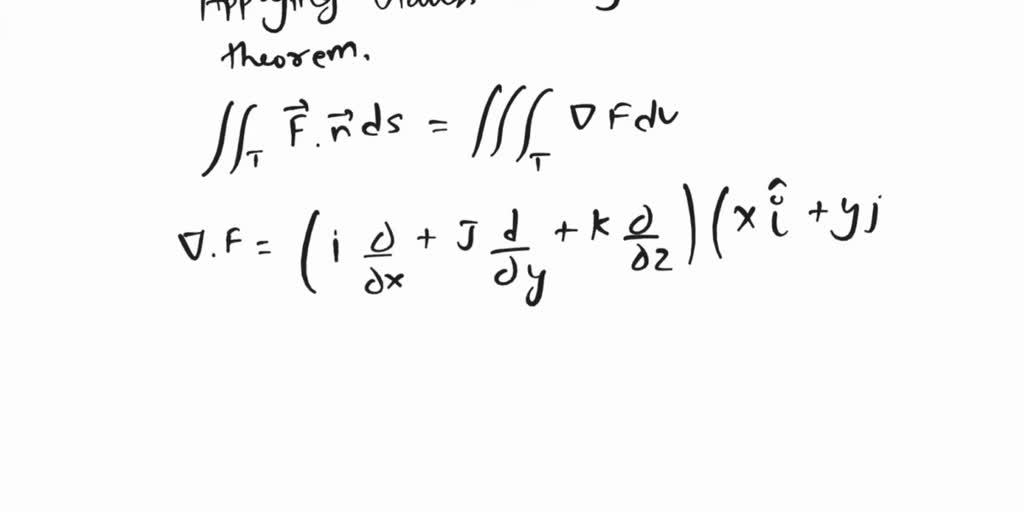 Applying
theorem.
∬_T F⃗ . n⃗ ds = ∭_T ∇ F dv
∇ . F = ( i ∂/∂x + J d/∂y + k ∂/∂z ) ( x î + y j